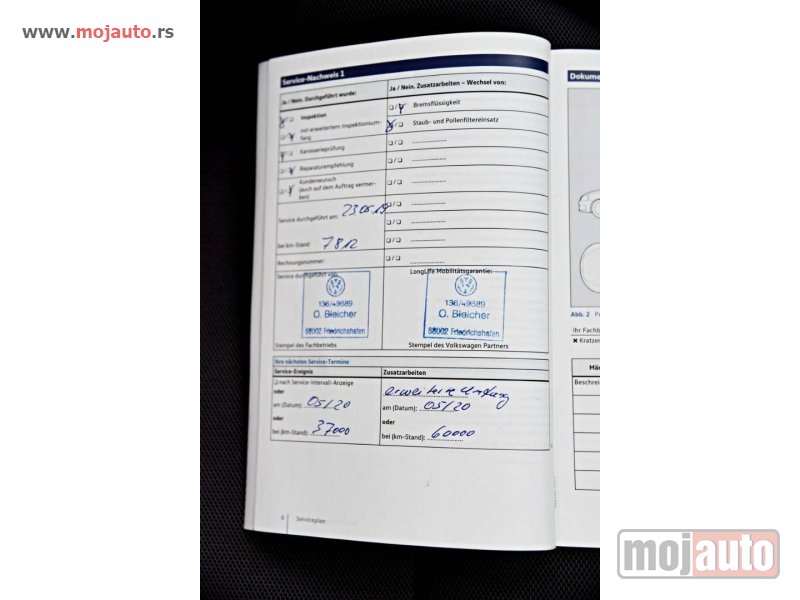 www.mojauto.rs
Service-Nachweis 1
Ja / Nein. Durchgeführt wurde:
Ja / Nein. Zusatzarbeiten – Wechsel von:
Inspektion
mit erweitertem Inspektionsum-
fang
Karosserieprüfung
Reparaturempfehlung
Kundenwunsch
(auch auf dem Auftrag vermer-
ken)
Bremsflüssigkeit
Staub- und Pollenfiltereinsatz
Service durchgeführt am: 23.05.19
bei km-Stand: 7812
Rechnungsnummer:
Service durchgeführt von:
LongLife Mobilitätsgarantie:
136/49689
O. Bleicher
88002 Friedrichshafen
Stempel des Fachbetriebs
136/49689
O. Bleicher
88002 Friedrichshafen
Stempel des Volkswagen Partners
Ihre nächsten Service-Termine
Service-Ereignis
Zusatzarbeiten
nach Service-Intervall-Anzeige
oder
am (Datum): 05/20
oder
bei (km-Stand): 37000
am (Datum): 05/20
oder
bei (km-Stand): 60000
4 Serviceplan
Dokume
Abb. 2
Ihr Fachb
Kratzer
Män
Beschrei
mojauto